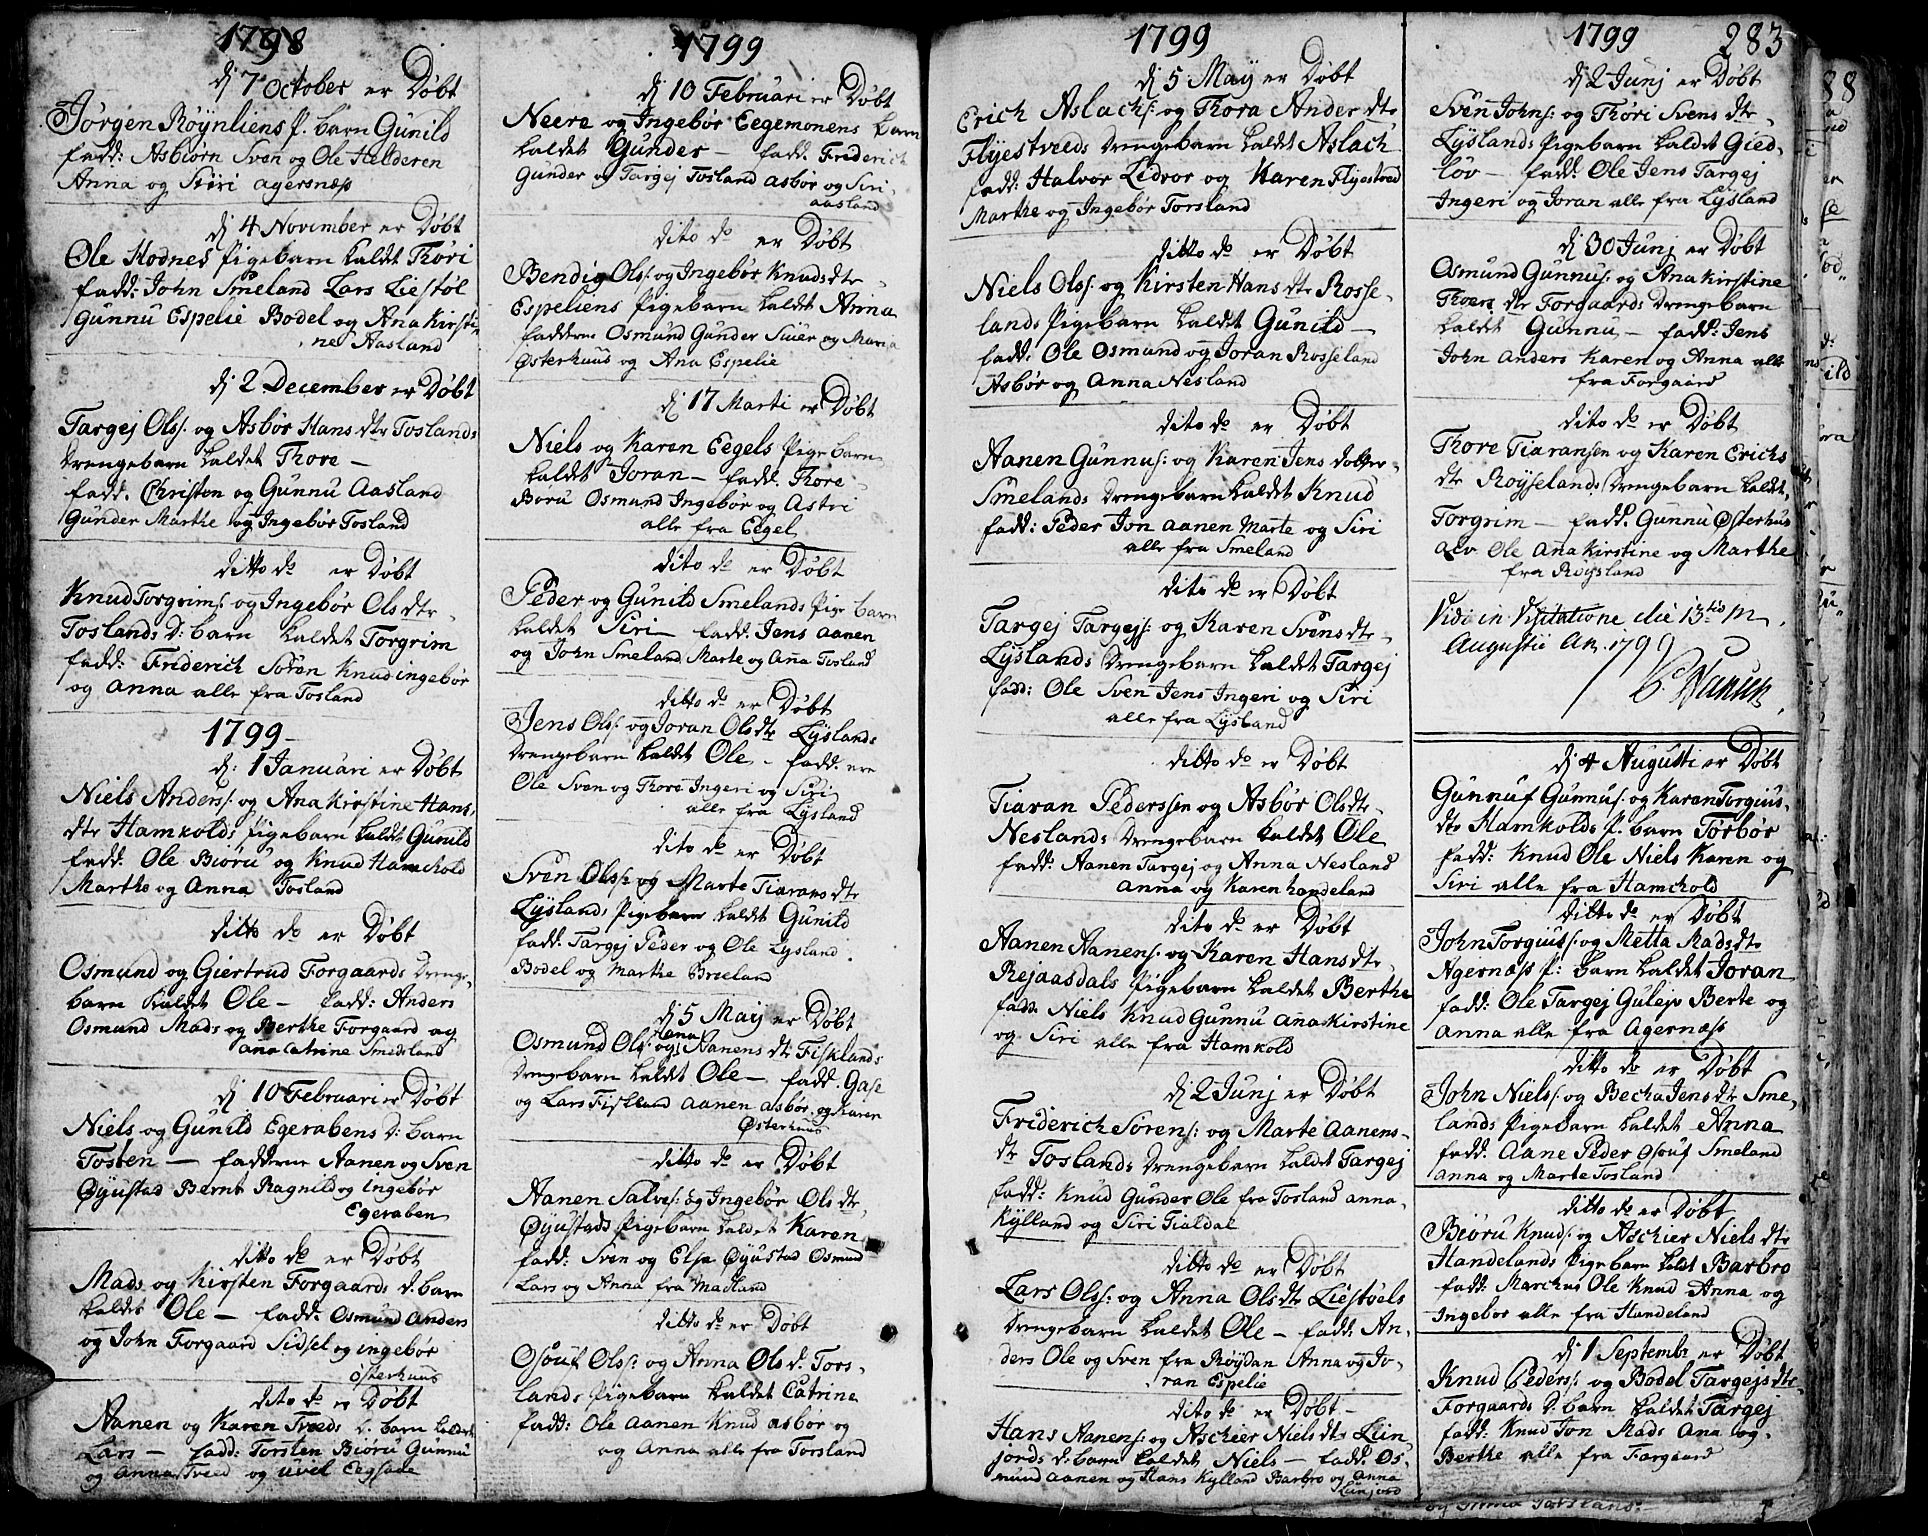 1798
dj 7 October er Døbt
Jörgen Röynliens P. barn Gunild
fadd: Asbiörn Sven og Ole Helderen
Anna og Siri agersnæss
dj 4 November er Døbt
Ole Hodnes Pigebarn kaldet Thöri
fadd: John Smeland Lars Liestöl
Gunnu Espelie Bodel og Ana Kirsti-
ne Aasland
dj 2 December er Døbt
Targej Ols: og Asbör Hans dtr Toslands
Drengebarn kaldet Thore —
fadd. Christen og Gunnu Aasland
Gunder Marthe og Ingebör Tosland
ditto do er Døbt
Knud Torgrims: og Ingebör Ols dtr
Toslands D: barn kaldet Torgrim
fadd: Friderich Sören Knud ingebör
og Anna alle fra Tosland
1799
d: 1 Januari er Døbt
Niels Anders: og Ana Kirstine Hans
dtr Hamkolds Pigebarn kaldt Gunild
fadd. Ole Biöru og Knud Hamchold
Marthe og Anna Tosland
ditto do er Døbt
Osmund og Giertrud Forgaards Drenge-
barn kaldet Ole — fadd: Anders
Osmund Mads og Berthe Forgaard og
ana Catrine Smedsland
dj 10 Februari er Døbt
Niels og Gunild Egerabens D: barn
Tosten — fadderne Aanen og Sven
Öyustad Bernt Ragnild og Ingebör
Egeraben
ditto do er Døbt
Mads og Kirsten Forgaards D. barn
kaldet Ole — fadd. Osmund Anders
og John Forgaard Sidsel og ingebör
österhuus
dito do er Døbt
Aanen og Karen Tveeds D: barn kaldet
Lars — fadd: Torsten Biöru Gunnu
og Anna Tveed og
1799
dj 10 Februari er Døbt
Neere og Ingebör Eegemonens barn
kaldet Gunder — fadd. Friderich
Gunder og Targej Tosland asbör og Siri
aasland
dito do er Døbt
Bendig Ols: og Ingebör Knuds dtr
Espeliens Pigebarn kaldet Anna
fadderne Osmund Gunder Siver og Maria
Østerhuus og Ana Espelie
dj 17 Marti er Døbt
Niels og Karen Eegels Pigebarn
kaldet Joran — fadd. Thore
Boru Osmund Ingebör og Astri
alle fra Eegel
dito do er Døbt
Peder og Gunild Smelands Pige barn
kaldet Siri — fadd. Jens aanen
og John Smeland Marte og Anna Tosland
ditto do er Døbt
Jens Ols: og Joran Ols dtr Lÿslands
Drengebarn kaldet Ole — fadd. ere
Ole Sven og Thore Ingeri og Siri
alle fra Lÿsland
dito do er Døbt
Sven Ols: og Marte Tiarans dtr
Lÿslands Pigebarn kaldet Gunild
fadd: Targej Peder og Ole Lysland
Bodel og Marthe Brieland
dj 5 Maij er Døbt
Osmund Ols: og Anna Aanens dtr Fisklands
Drengebarn kaldet Ole — fadd. Gase
og Lars Fiskland aanen asbör og Karen
Østerhuus
ditto do er Døbt
Aanen Salves: og Ingebör Ols dtr
Öyustads Pigebarn kaldet Karen
fadd: Sven og Else Öyustad Osmund
Lars og Anna fra Madland
ditto do er Døbt
Osouf Ols: og Anna Ols d: Tors-
lands Pigebarn kaldet Catrine
fadd: Ole aanen Knud asbör og
og Anna alle fra Torsland
1799
dj 5 Maÿ er Døbt
Erich Aslachs: og Thora Ander dtr
Flÿestveeds Drengebarn kaldet Aslach
fadd: Halvor Lidvor og Karen Flyestved
Marthe og Ingebör Torsland
ditto do er Døbt
Niels Ols: og Kirsten Hans dtr Rosse-
lands Pigebarn kaldet Gunild —
fadd: Ole Osmund og Joran Rosseland
Asbör og Anna Nesland
dito do er Døbt
Aanen Gunnus: og Karen Jens dotter
Smelands Drengebarn kaldet Knud
fadd: Peder Jon aanen Marte og Siri
alle fra Smeland
dito do er Døbt
Targej Targejs: og Karen Svens dtr
Lÿslands Drengebarn kaldet Targej
fadd: Ole Sven Jens Ingeri og Siri
alle fra Lÿsland
ditto do er Døbt
Tiaran Pederssen og Asbör Ols dtr
Neslands Drengebarn kaldet Ole
fadd: Aanen Targej og Anna Nesland
Anna og Karen handeland
dito do er Døbt
Aanen Aanens: og Karen Hans dtr
Rejaasdals Pigebarn kaldet Berthe
fadd: Niels Knud Gunnu anakirstine
og Siri alle fra Hamkold
dj 2 Junj er Døbt
Friderich Sörens: og Marte Aanens
dtr Toslands Drengebarn kaldet Targej
fadd: Knud Gunder Ole fra Tosland anna
Kÿlland og Siri Tialdal
ditto do er Døbt
Lars Ols: og Anna Ols dtr Liestöels
Drengebarn kaldet Ole — fadd: An-
ders Ole og Sven fra Röysdan Anna og Jo-
ran Espelie
dito do er Døbt —
Hans Aanens: og Aschier Niels dtr Liun
jords D. barn kaldet Niels — fadd: Os-
mund aanen og Hans Kylland Barbro og Anna
Liunjord
1799 283
dj 2 Junj er Døbt
Sven Johns: og Thöri Svens dtr
Lÿslands Pigebarn kaldet Gied-
löv — fadd. Ole Jens Targej
Ingeri og Joran alle fra Lÿsland
dj 30 Junj er Døbt
Osmund Gunnus: og Ana Kirstine
Thors dtr Forgaards Drengebarn
kaldet Gunnu — fadd: Jens
John Anders Karen og Anna alle
fra Forgaard
ditto do er Døbt
Thore Tiaransen og Karen Erichs
dtr Röyselands Drengebarn kaldet
Torgrim — fadd. Gunnu Østerhus
alv Ole Ana Kirstine og Marthe
fra Röysland
Vidi in Visitatione die 13tio M.
Augustii An. 1799
/ C. Hansen
dj 4 Augusti er Døbt
Gunnuf Gunnus: og Karen Torgius
dtr Hamkolds P. barn Torbör
fadd: Knud Ole Niels Karen og
Siri alle fra Hamchold
ditto do er Døbt
John Torgius: og Metta Mads dtr
Agernæss P: barn kaldet Joran
fadd: Ole Targej Gulejv Berte og
Anna alle fra Agernæss
ditto do er Døbt
John Niels: og Becha Jens dtr Sme-
lands Pigebarn kaldet Anna
fadd. Aane Peder Osouf Smeland
Anna og Marte Tosland
ditto do er Døbt
Biöru Knuds: og Aschier Niels dtr
Handelands Pigebarn kaldt Barbro
fadd: Marchus Ole Knud Anna og
Ingebör alle fra Handeland
dj 1 Septembr er Døbt
Knud Peders: og Bodel Targejs dtr
Forgaards D: barn kaldet Targej
fadd: Knud Jon Mads Ana og
Berthe alle fra Forgaard
og Anna Torsland: